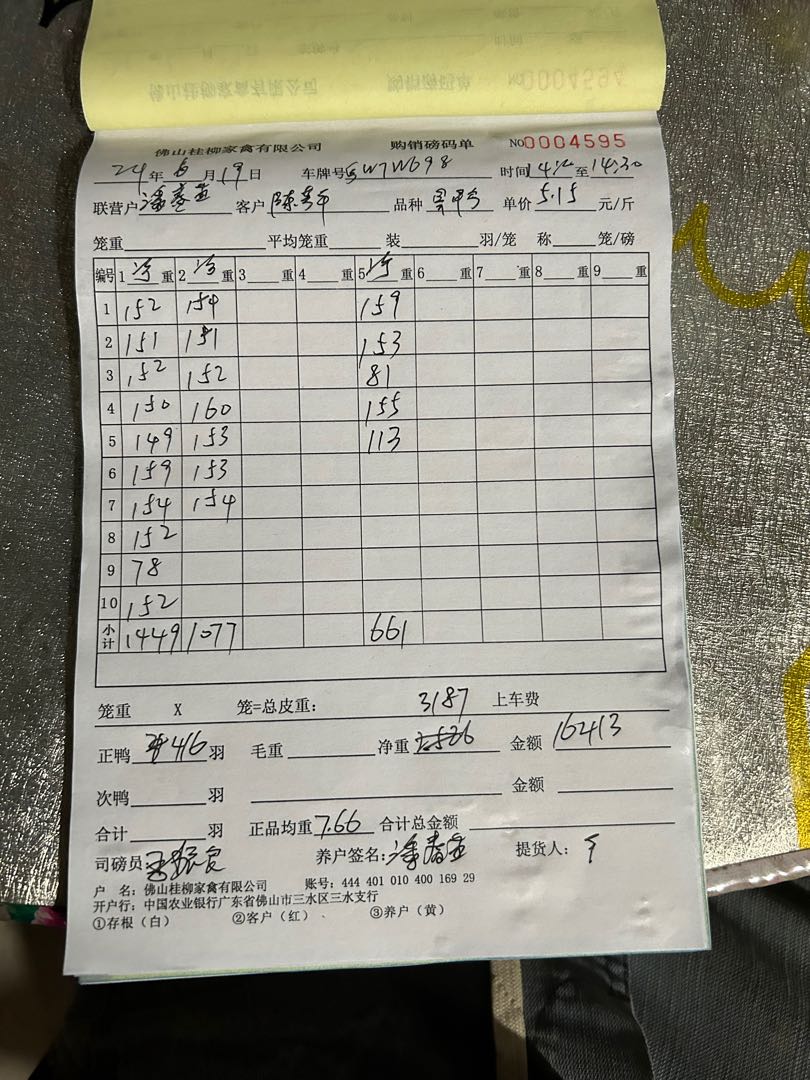 佛山桂柳家禽有限公司 购销磅码单 NO0004594
佛山桂柳家禽有限公司 购销磅码单 NO0004595
24年6月19日 车牌号 W7W698 时间 至14:30
联营户 潘 客户 陈 品种 单价5.15元/斤
笼重 平均笼重 装 羽/笼 称 笼/磅
编号 1净重 2净重 3 重 4 重 5净重 6 重 7 重 8 重 9 重
1 152 154 159
2 151 151 153
3 152 152 81
4 150 160 155
5 149 153 113
6 159 153
7 154 154
8 152
9 78
10 152
小计 1449 1077 661
笼重 X 笼=总皮重: 3187 上车费
正鸭 416羽 毛重 净重 2526 金额 16413
次鸭 羽 金额
合计 羽 正品均重7.66 合计总金额
司磅员 养户签名: 潘春 提货人:
户 名:佛山桂柳家禽有限公司 账号:444 401 010 400 169 29
开户行:中国农业银行广东省佛山市三水区三水支行
①存根(白) ②客户(红) ③养户(黄)